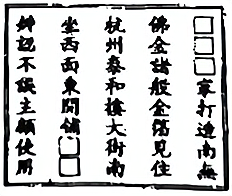 □□□家打造南無
佛金諸般金箔見住
杭州泰和樓大街南
坐西面東開舖□□
辨認不誤主顧使用